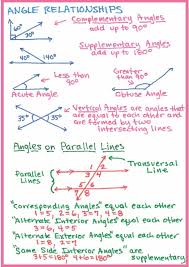 ANGLE RELATIONSHIPS
Complementary Angles
add up to 90°
Supplementary Angles
add up to 180°
40° 140°
Less than
90°
Acute Angle
Greater
than 90°
Obtuse Angle
35° 35°
Vertical Angles are angles that
are equal to each other and
are formed by two
intersecting lines
Angles on Parallel Lines
Transversal
Line
Parallel
Lines
1 2
3 4
5 6
7 8
"Corresponding Angles" equal each other
1=5, 2=6, 3=7, 4=8
"Alternate Interior Angles" equal each other
3=6, 4=5
"Alternate Exterior Angles" equal each other
1=8, 2=7
"Same Side Interior Angles" are
3+5=180° 4+6=180° supplementary